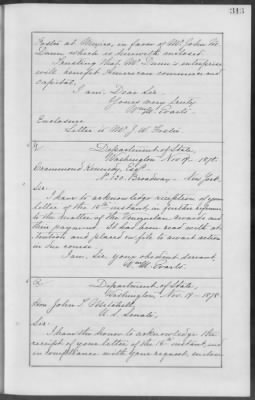 313
Foster at Mexico, in favor of Mr. John W.
Dunn, which is herewith enclosed.
Trusting that Mr. Dunn's enterprise
will benefit American commerce and
capital,
I am, Dear Sir,
Yours very truly,
Wm. M. Evarts.
Enclosure
Letter to Mr. J. W. Foster
Department of State,
Washington, Nov. 19. 1878.
Drammond Kennedy, Esqr.
No. 120. Broadway. New York.
Sir:
I have to acknowledge reception of your
letter of the 16th instant, in further reference
to the matter of the Venezuelan awards and
their payment. It has been read with at-
tention and placed on file to await action
in due course.
I am, Sir, your obedient servant,
Wm. M. Evarts.
Department of State,
Washington, Nov. 19 - 1878
Hon. John I. Mitchell,
U. S. Senate,
Sir:
I have the honor to acknowledge the
receipt of your letter of the 16th instant, and
in compliance with your request, enclose